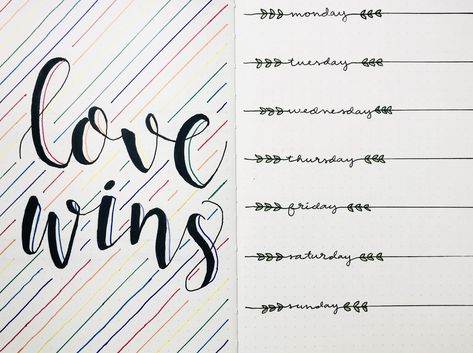 love
wins
monday
tuesday
wednesday
thursday
friday
saturday
sunday